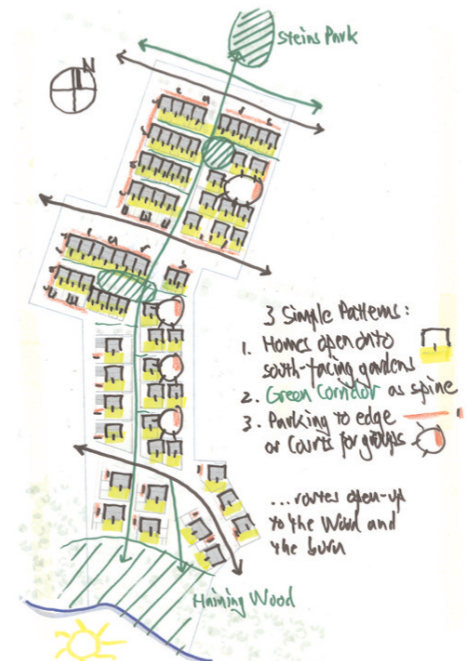 Steins Park
N
3 Simple Patterns:
1. Homes open onto
south-facing gardens
2. Green Corridor as spine
3. Parking to edge
or Courts for groups
...routes open-up
to the Wood and
the burn
Haining Wood